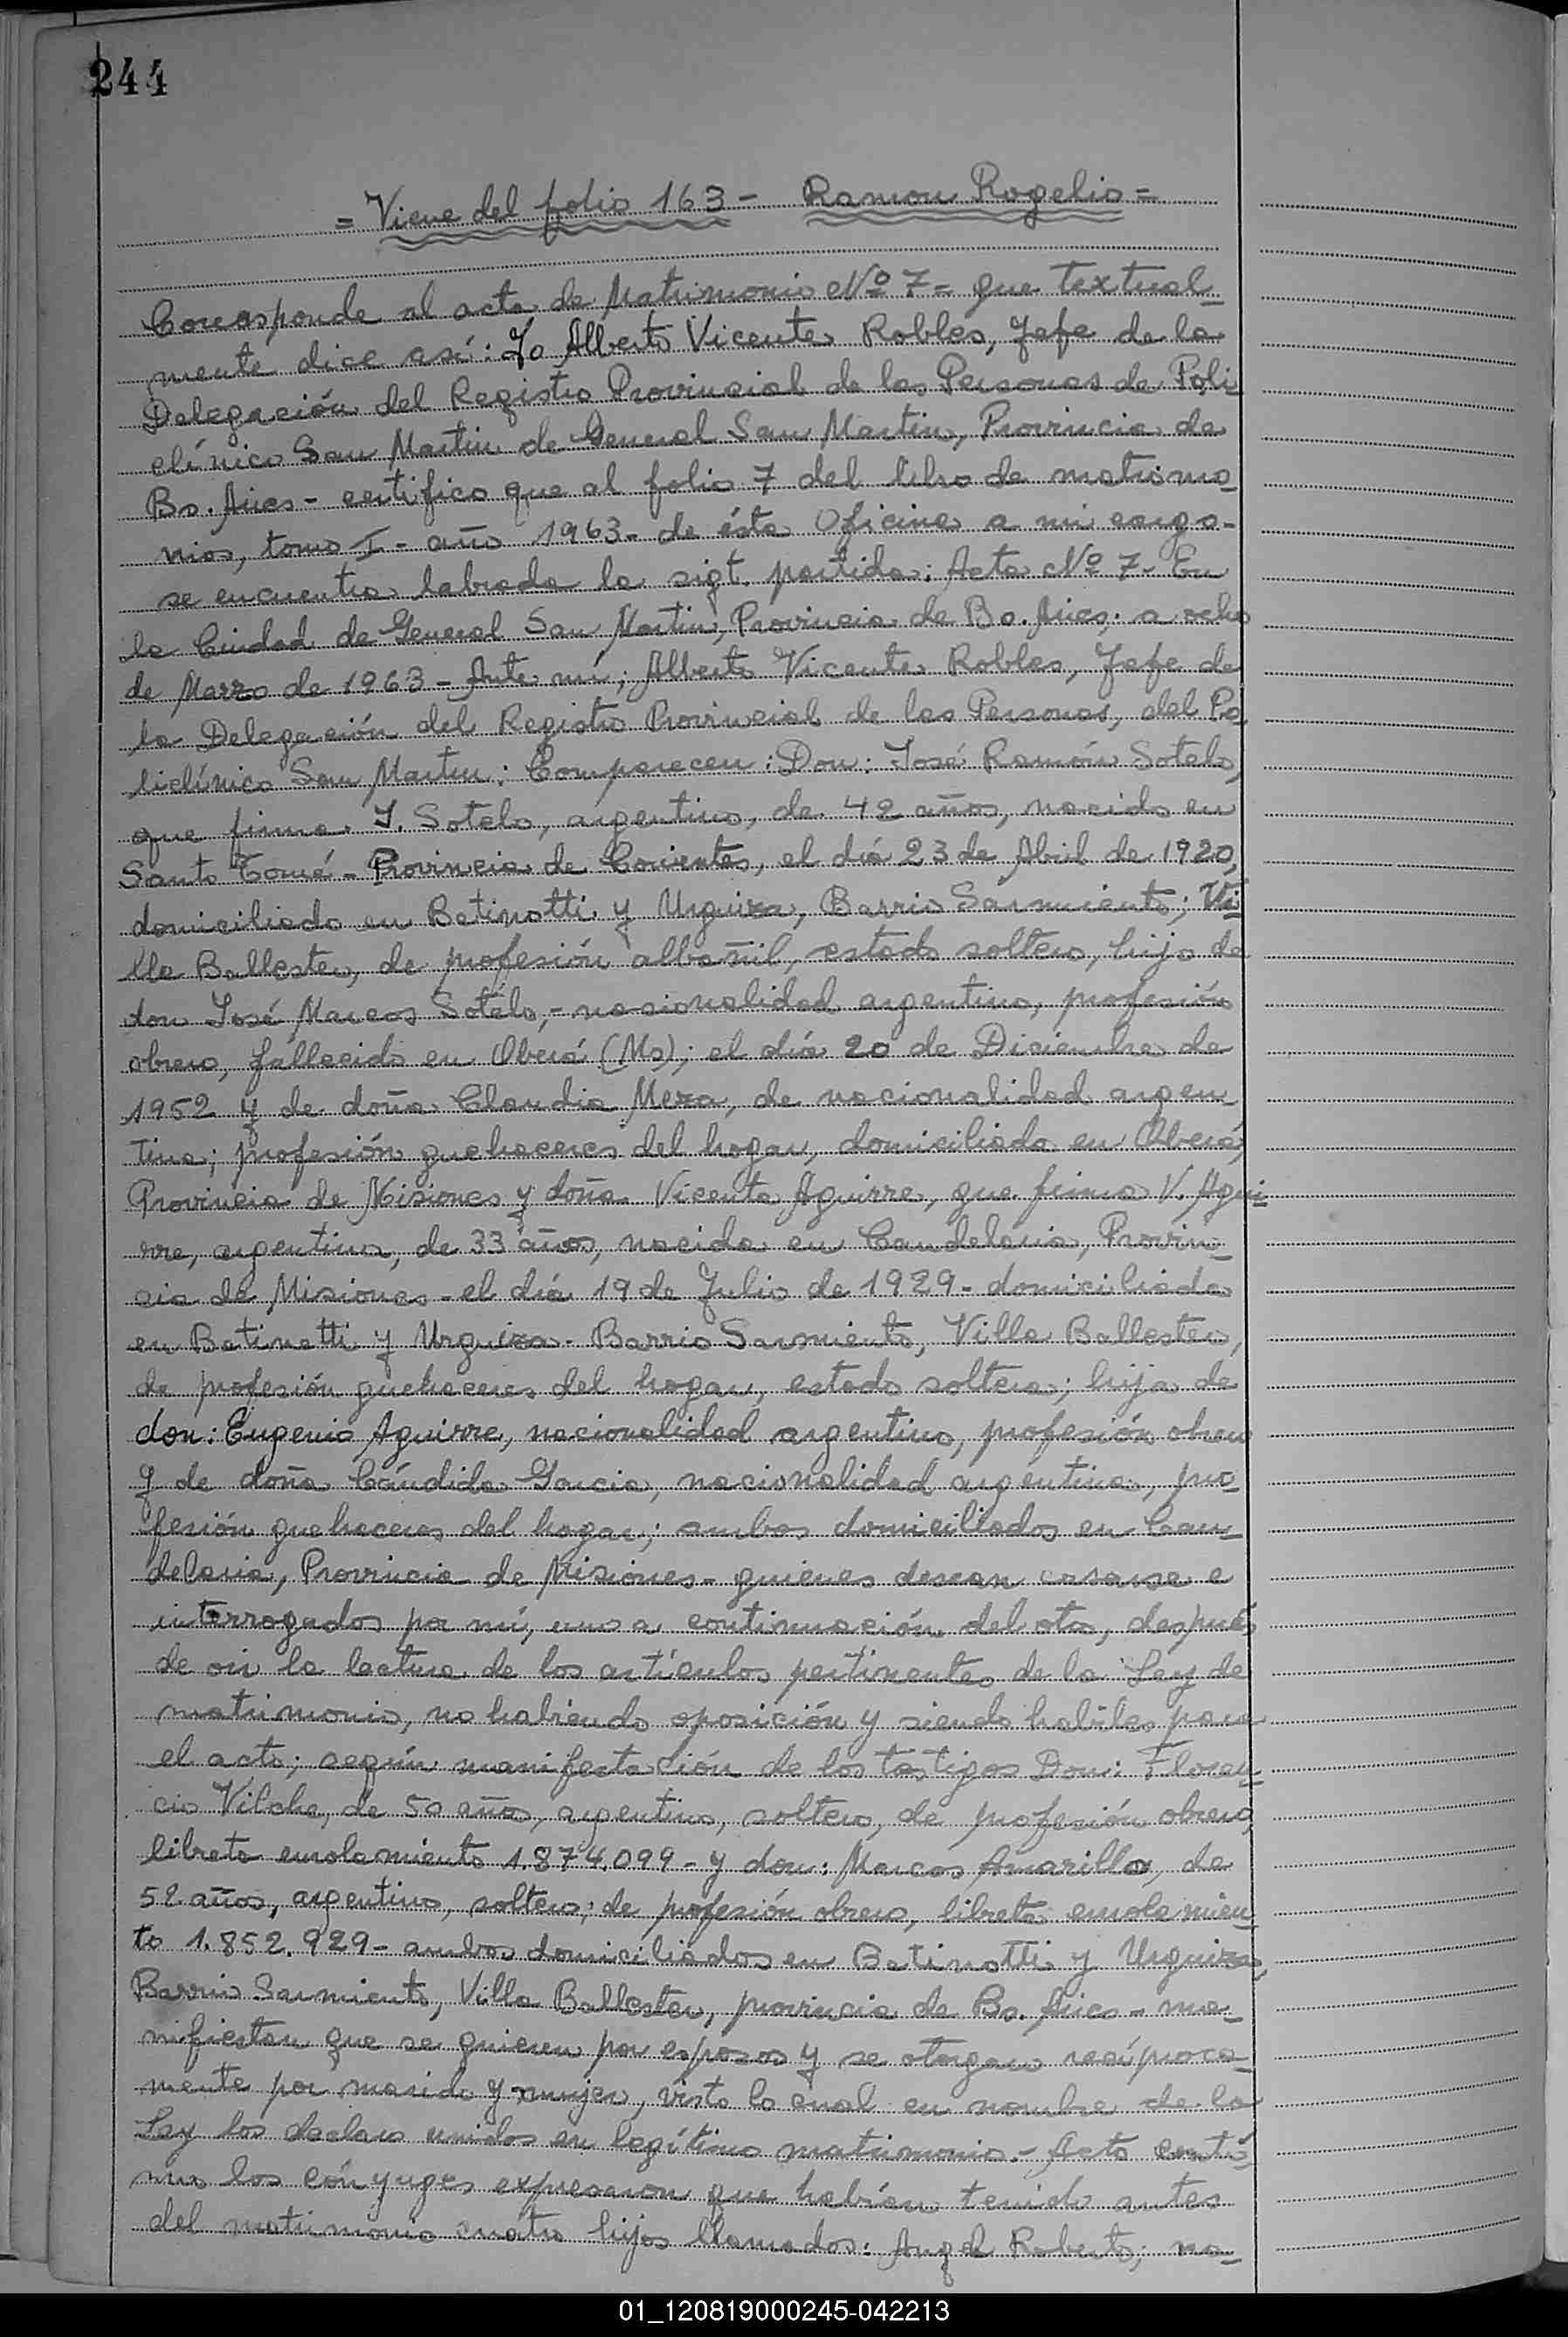 244
= Viene del folio 163 - Ramon Rogelio =
Corresponde al acta de Matrimonio Nº 7 = que textual-
mente dice así: Yo Alberto Vicente Robles, Jefe de la
Delegación del Registro Provincial de las Personas de Poli-
clínico San Martin de General San Martin, Provincia de
Bs. Aires - certifico que al folio 7 del libro de matrimo-
nios, tomo I - año 1963 - de ésta Oficina a mi cargo -
se encuentra labrada la sigt. partida: Acta Nº 7 - En
la Ciudad de General San Martin, Provincia de Bs. Aires; a ocho
de Marzo de 1963 - Ante mí; Alberto Vicente Robles, Jefe de
la Delegación del Registro Provincial de las Personas, del Po-
liclínico San Martin: Comparecen: Don: José Ramón Sotelo,
que firma J. Sotelo, argentino, de 42 años, nacido en
Santo Tomé - Provincia de Corrientes, el día 23 de Abril de 1920,
domiciliado en Betinotti y Urquiza, Barrio Sarmiento; Vi-
lla Ballester, de profesión albañil, estado soltero, hijo de
don José Marcos Sotelo, - nacionalidad argentino, profesión
obrero, fallecido en Oberá (Ms); el día 20 de Diciembre de
1952 y de doña Claudia Meza, de nacionalidad argen-
tina; profesión quehaceres del hogar, domiciliada en Oberá,
Provincia de Misiones y doña Vicenta Aguirre, que firma V. Agui-
rre, argentina, de 33 años, nacida en Candelaria, Provin-
cia de Misiones - el día 19 de Julio de 1929 - domiciliada
en Betinotti y Urquiza - Barrio Sarmiento, Villa Ballester,
de profesión quehaceres del hogar, estado soltera; hija de
don: Eugenio Aguirre, nacionalidad argentino, profesión obrero
y de doña Cándida Garcia, nacionalidad argentina, pro-
fesión quehaceres del hogar; ambos domiciliados en Can-
delaria, Provincia de Misiones - quienes desean casarse e
interrogados por mí, uno a continuación del otro, después
de oir la lectura de los artículos pertinentes de la Ley de
matrimonio, no habiendo oposición y siendo habiles para
el acto; según manifestación de los testigos Don: Floren-
cio Vilche, de 50 años, argentino, soltero, de profesión obrero,
libreta enrolamiento 1.874.099 - y don: Marcos Amarilla, de
52 años, argentino, soltero; de profesión obrero, libreta enrolamien-
to 1.852.929 - ambos domiciliados en Betinotti y Urquiza,
Barrio Sarmiento, Villa Ballester, provincia de Bs. Aires - ma-
nifiestan que se quieren por esposos y se otorgan recíproca-
mente por marido y mujer, visto lo cual en nombre de la
Ley los declaro unidos en legítimo matrimonio. - Acto contí-
nuo los cónyuges expresaron que habían tenido antes
del matrimonio cuatro hijos llamados: Angel Roberto; na-
01_120819000245-042213